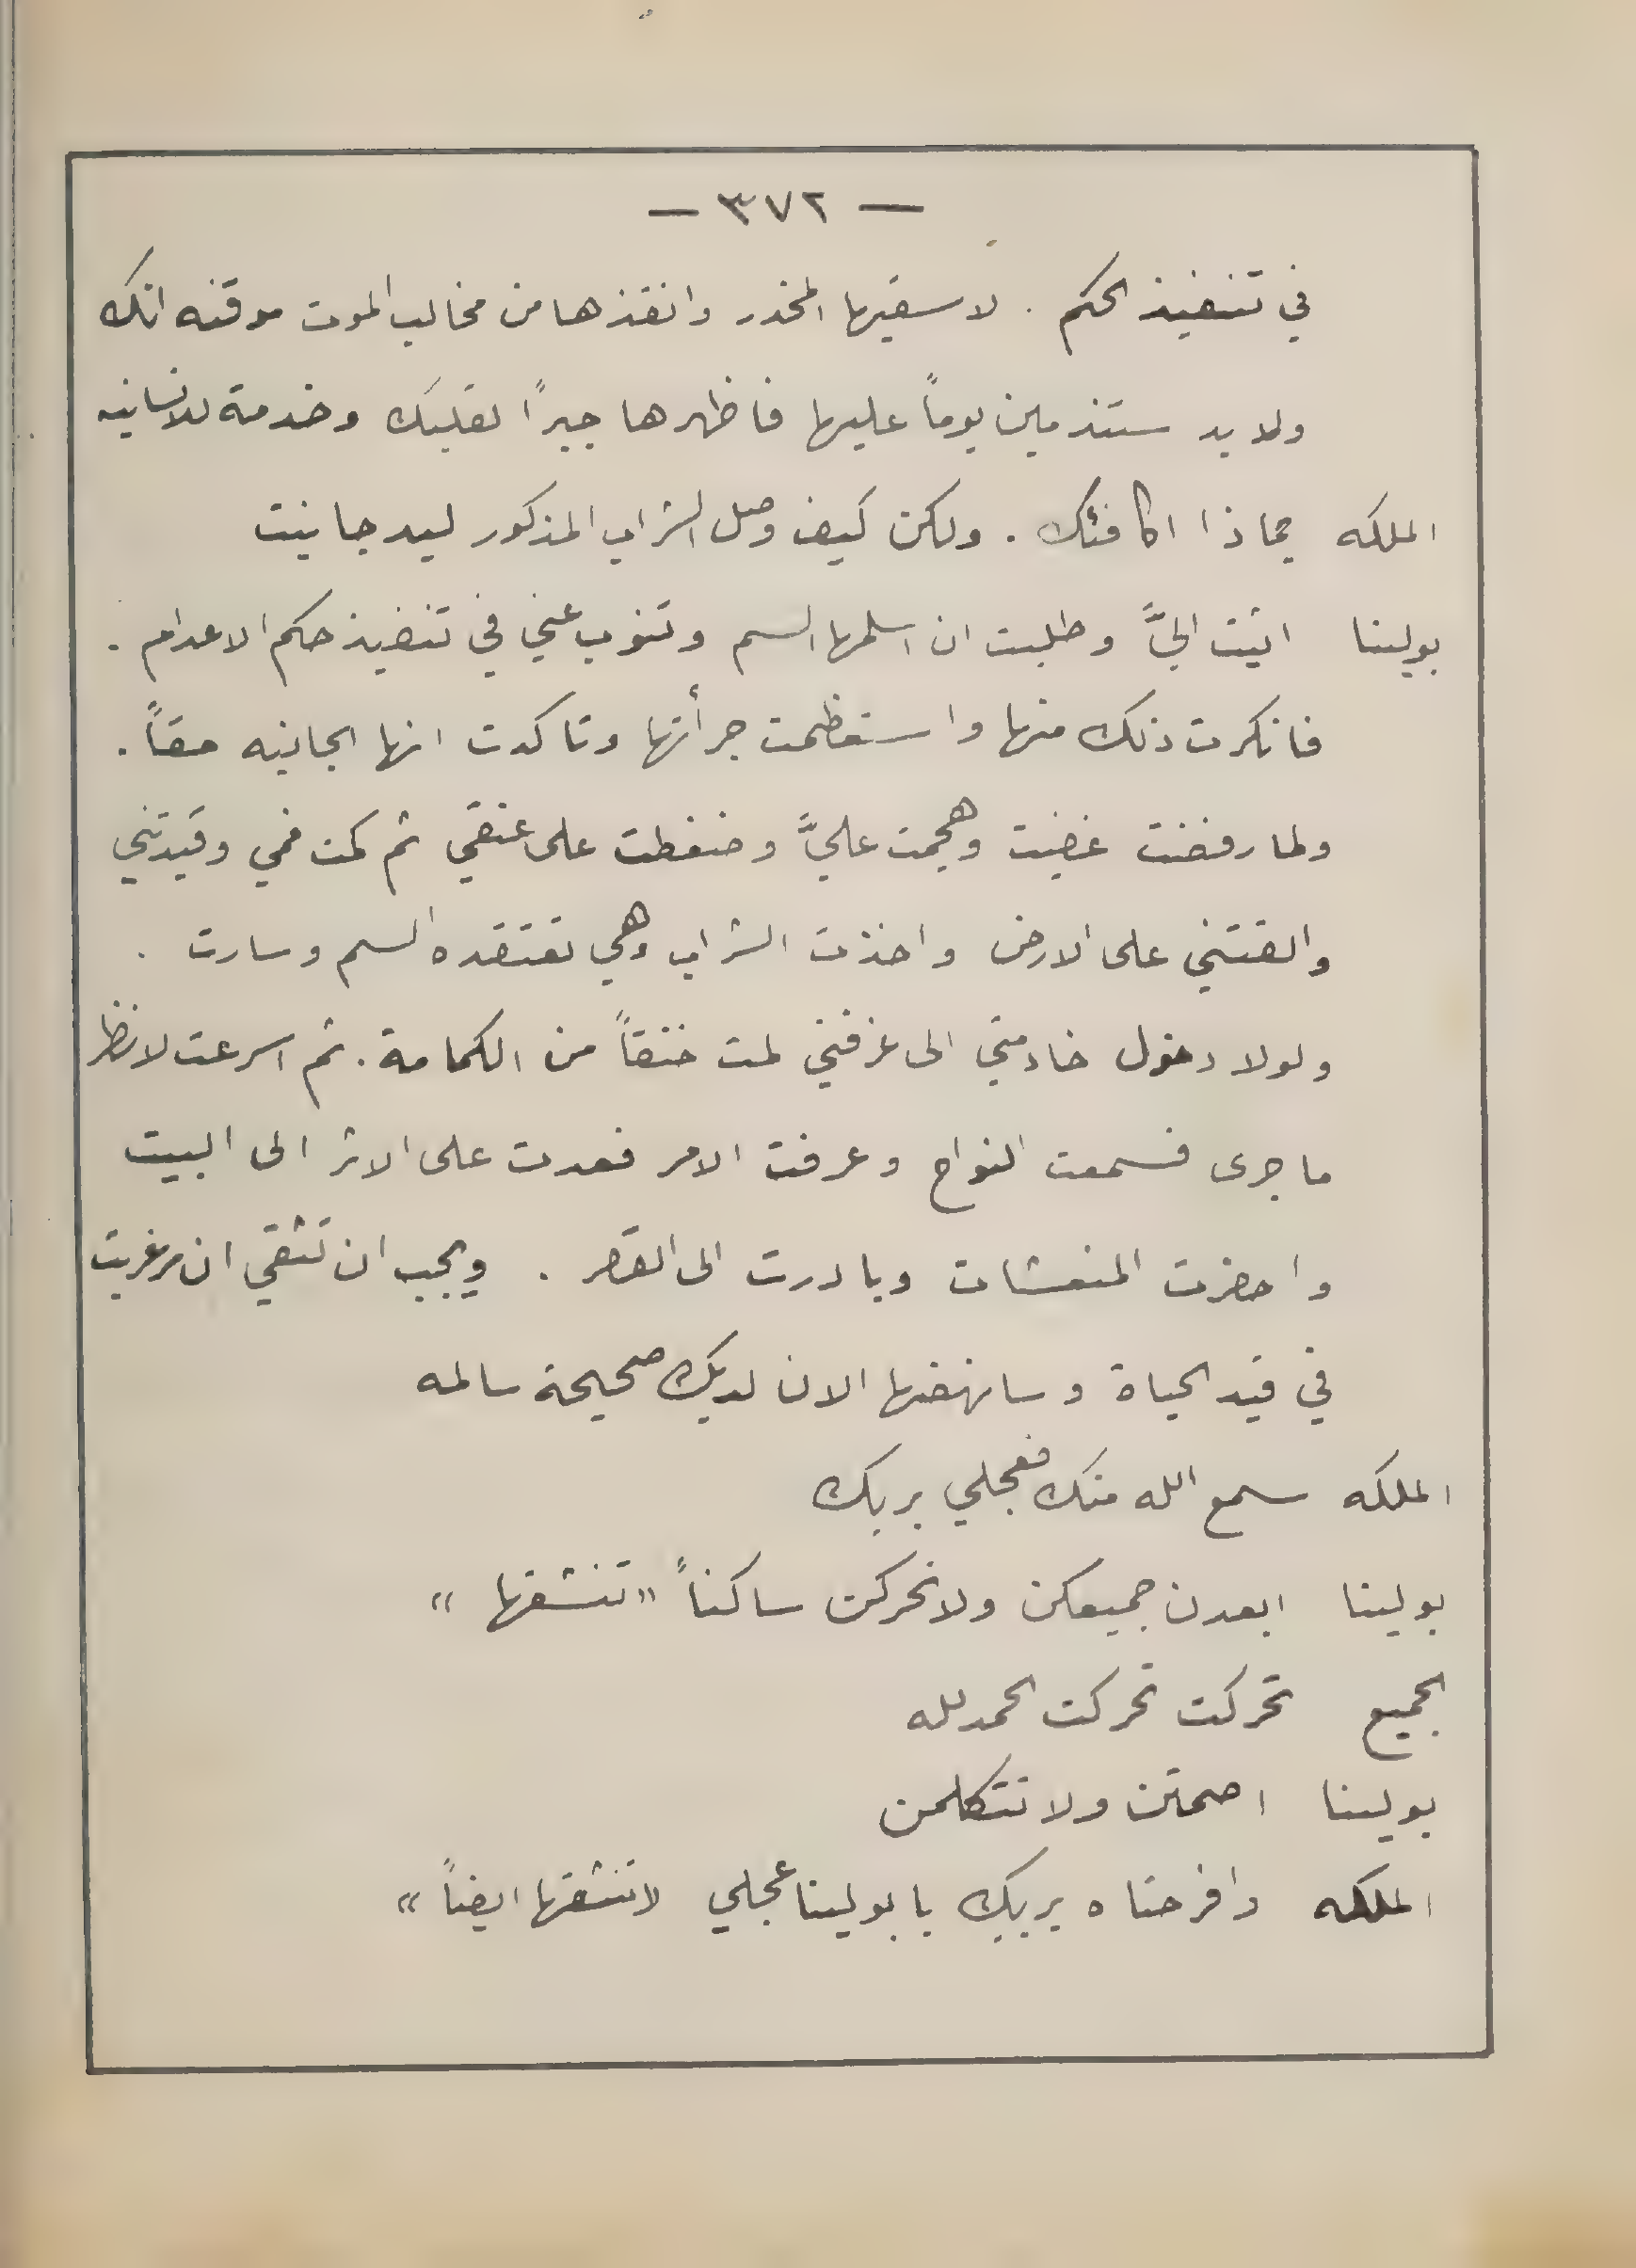 — ٣٧٢ —
في تنفيذ الحكم . لاسقيها المخدر وانقذها من مخالب الموت موقنه انك
ولا بد ستندمين يوماً عليها فاظهرها جبراً لقلبك وخدمة للانسانيه
الملكه بماذا اكافئك . ولكن كيف وصل الشراب المذكور ليد جانيت
بولينا اتيت اليَّ وطلبت ان اسلمها السم وتنوب عني في تنفيذ حكم الاعدام .
فانكرت ذلك منها واستعظمت جرأتها وتاكدت انها الجانيه حقاً .
ولما رفضت غضبت وهجمت عليَّ وضغطت على عنقي ثم كمت فمي وقيدتني
والقتني على الارض واخذت الشراب وهي تعتقده السم وسارت .
ولولا دخول خادمتي الى غرفتي لمت خنقاً من الكمامة . ثم اسرعت لانظر
ما جرى فسمعت النواح وعرفت الامر فعدت على الاثر الى البيت
واحضرت المنعشات وبادرت الى القصر . ويجب ان تثقي ان مرغريت
في قيد الحياة وسانهضها الان لديك صحيحة سالمه
الملكه سمع الله منك فعجلي بربك
بولينا ابعدن جميعكن ولا تحركن ساكناً «تنشقها »
الجميع تحركت تحركت الحمد لله
بولينا اصمتن ولا تتكلمن
الملكه وافرحتاه بربك يا بولينا عجلي لا تنشقها ايضاً »